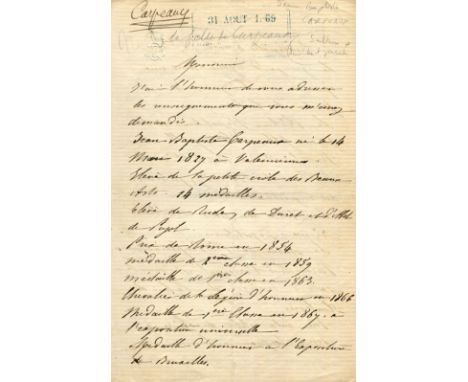 Carpeaux
31 AOUT 1869
Jean Baptiste
Carpeaux
de Carpeaux
Monsieur
J'ai l'honneur de vous adresser
les renseignements que vous m'avez
demandés.
Jean Baptiste Carpeaux né le 14
Mars 1827 à Valenciennes.
Elève de la petite école des Beaux
Arts 14 médailles.
Elève de Rude, de Duret et d'Abel
de Pujol
Prix de Rome en 1854
médaille de 2ème classe en 1859
médaille de 1ère classe en 1863.
Chevalier de la Légion d'honneur en 1866
Médaille de 1ère Classe en 1867. à
l'exposition universelle
Médaille d'honneur à l'Exposition
de Bruxelles.